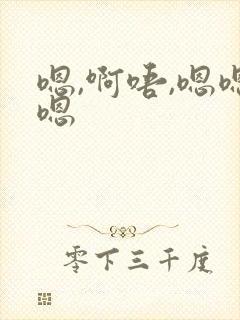 嗯,啊唔,嗯嗯
嗯
零下三千度